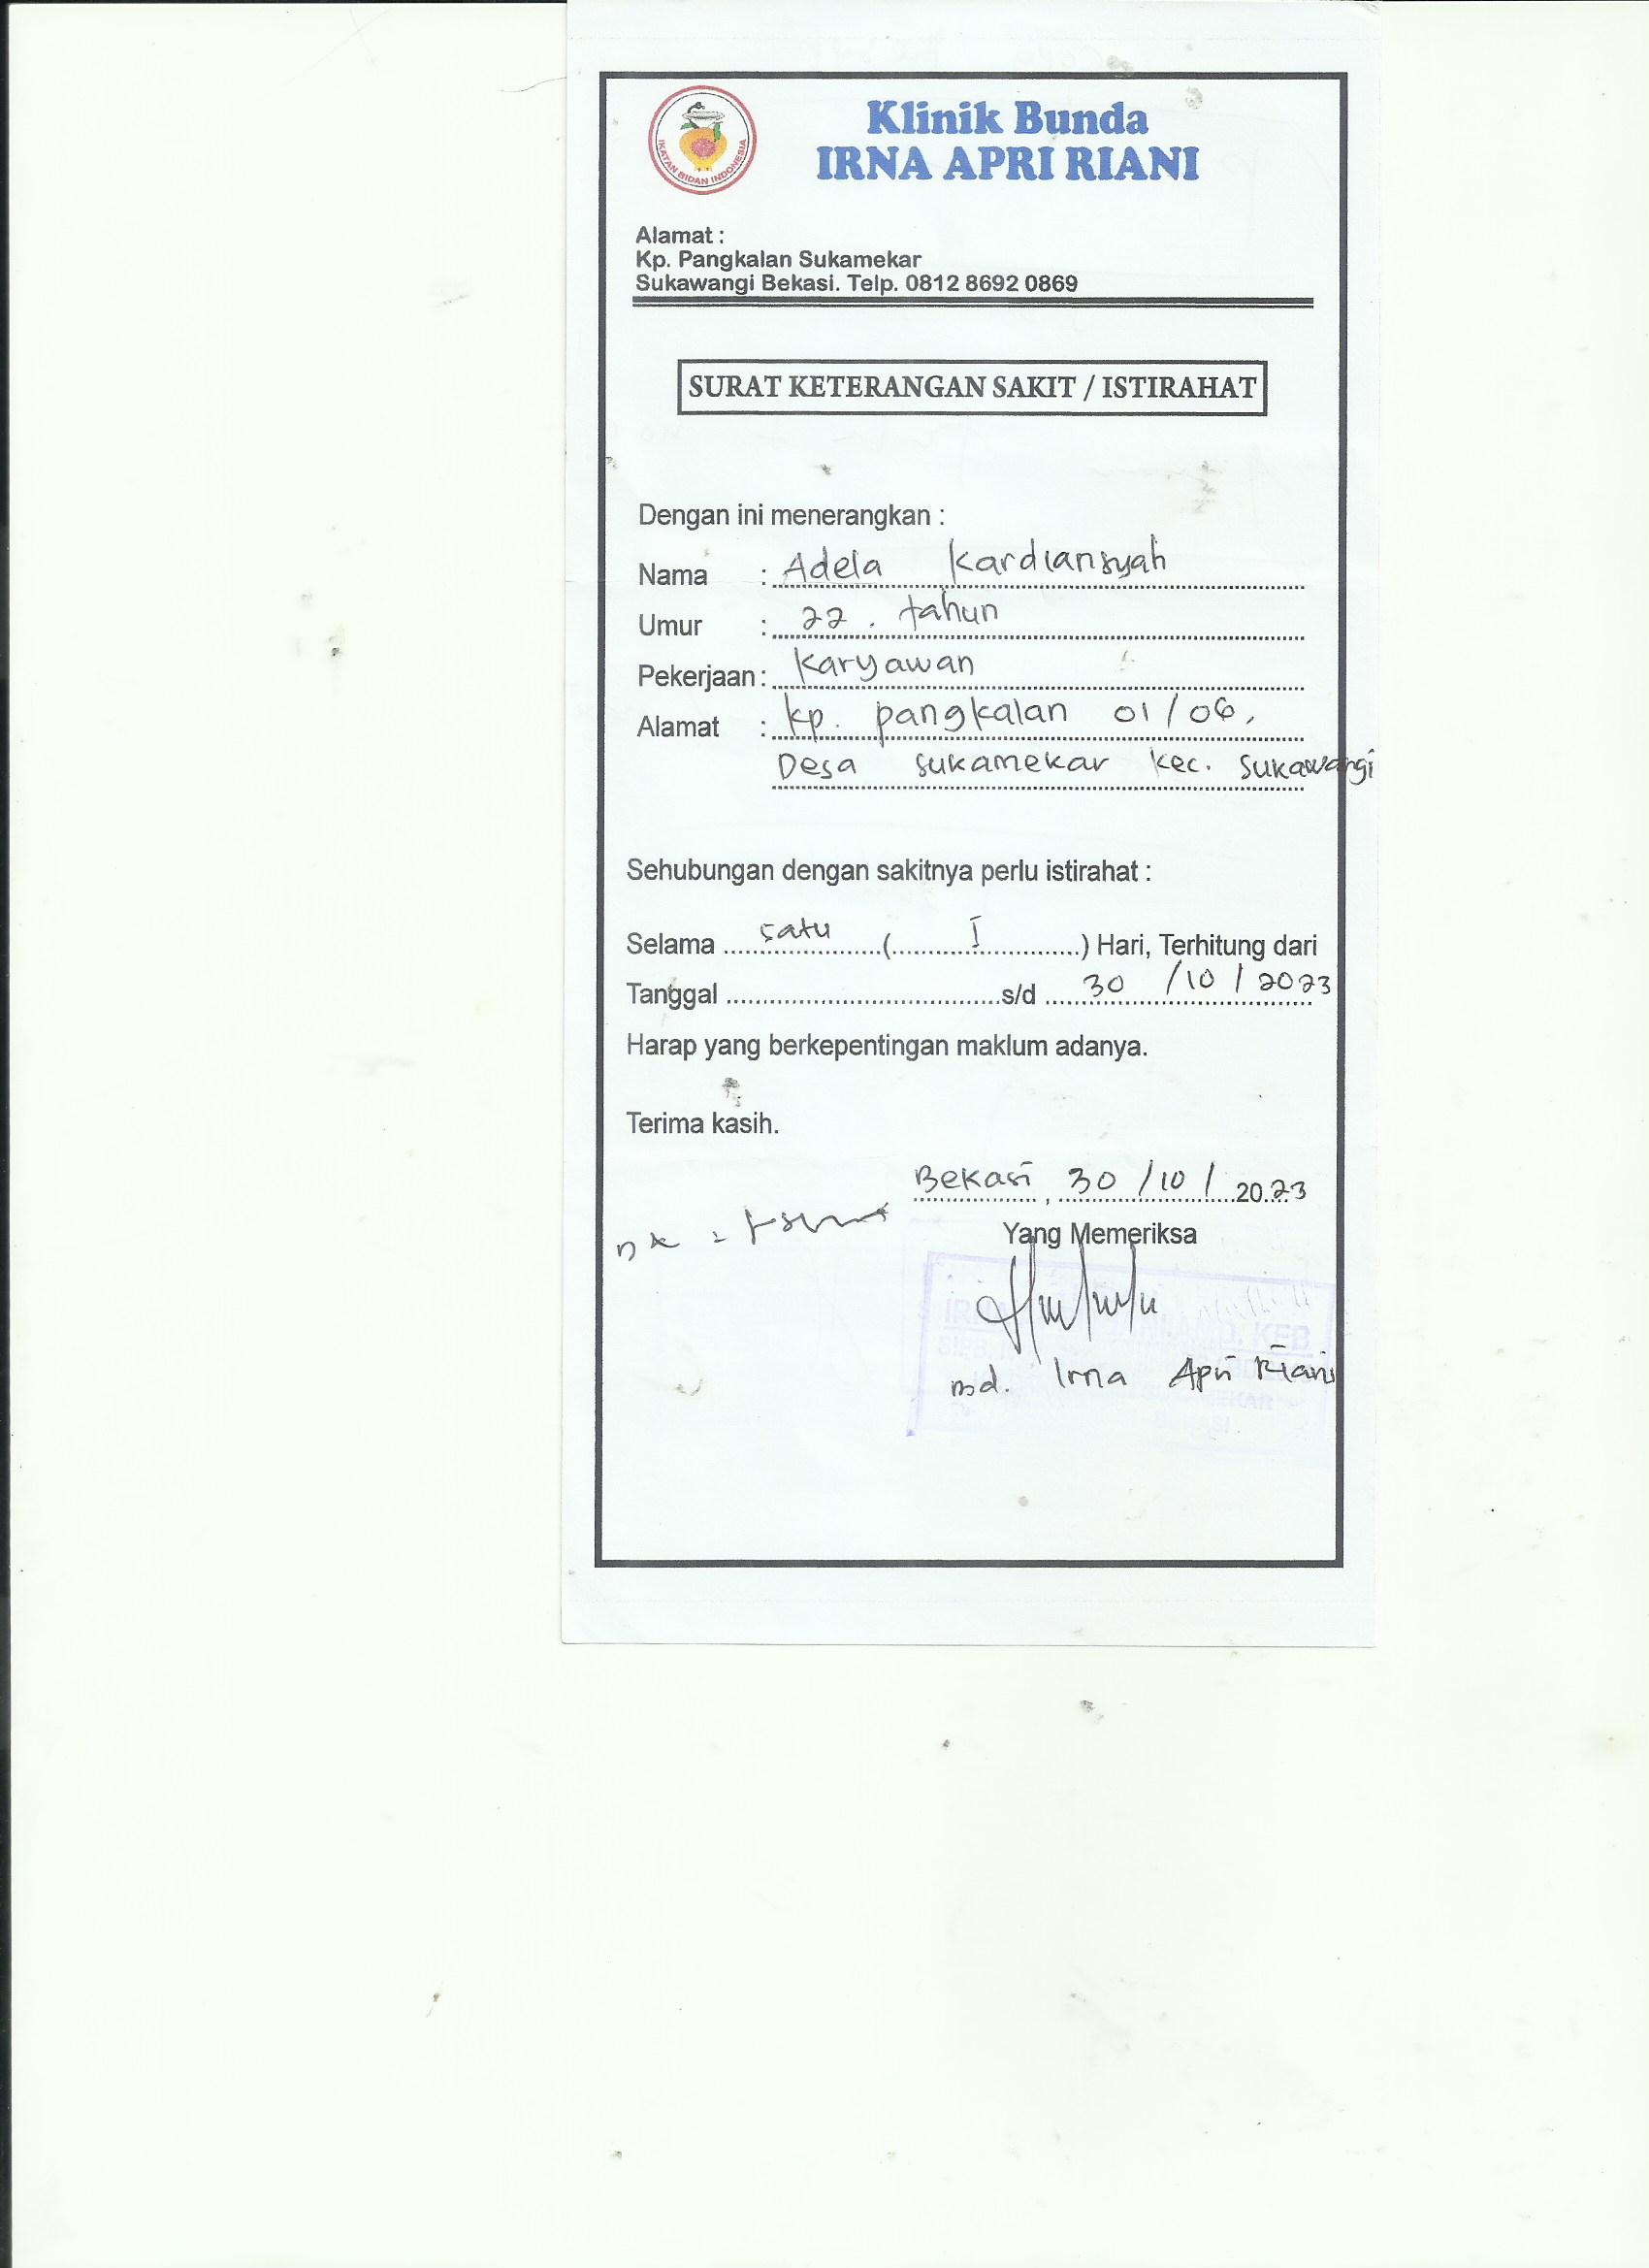 Klinik Bunda
IRNA APRI RIANI
IKATAN BIDAN INDONESIA
Alamat :
Kp. Pangkalan Sukamekar
Sukawangi Bekasi. Telp. 0812 8692 0869
SURAT KETERANGAN SAKIT / ISTIRAHAT
Dengan ini menerangkan :
Nama : Adela Kardiansyah
Umur : 22. tahun
Pekerjaan : Karyawan
Alamat : kp. pangkalan 01/06,
Desa sukamekar kec. sukawangi
Sehubungan dengan sakitnya perlu istirahat :
Selama satu ( I ) Hari, Terhitung dari
Tanggal s/d 30 /10 / 2023
Harap yang berkepentingan maklum adanya.
Terima kasih.
Bekasi, 30 /10 / 2023
Yang Memeriksa
Bd. Irna Apri Riani